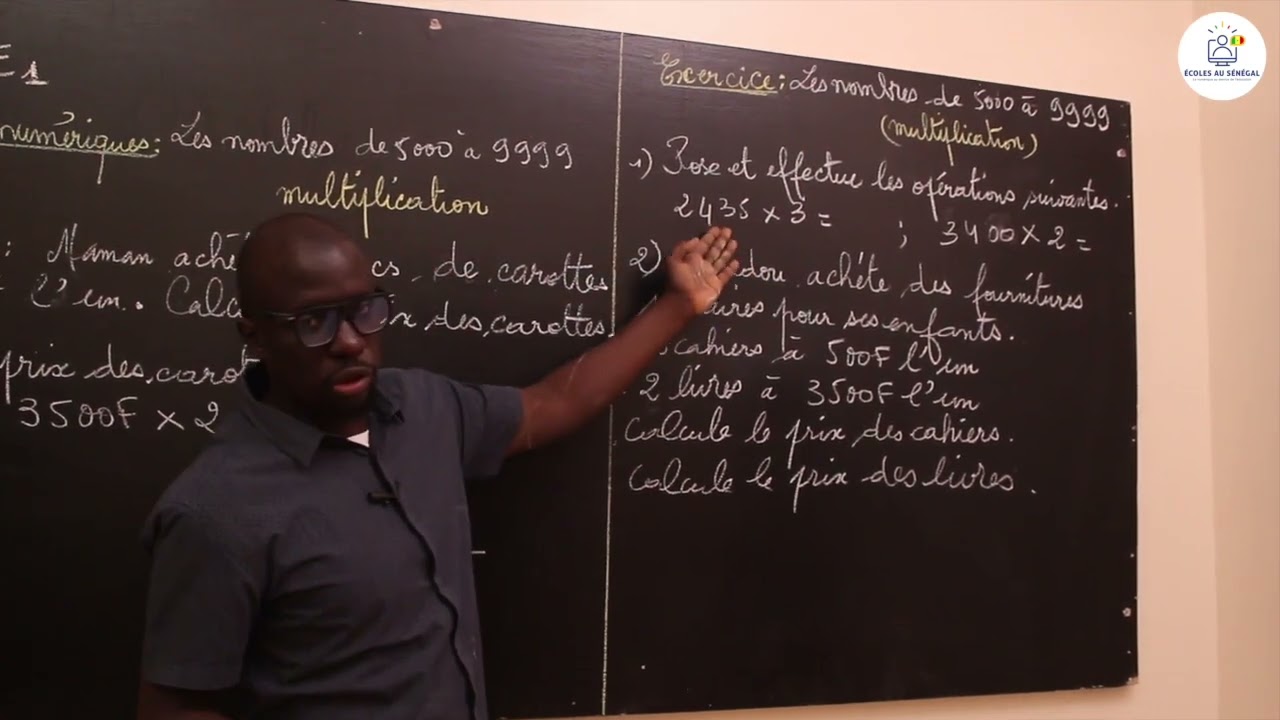 E1
numériques: Les nombres de 5000 à 9999
multiplication
: Maman de carottes
l'un. des carottes
prix des
3500F x 2
Exercice: Les nombres de 5000 à 9999
(multiplication)
1) Pose et effectue les opérations suivantes.
2435 x 3 = ; 3400 x 2 =
2) achète des fournitures
pour ses enfants.
cahiers à 500F l'un
2 livres à 3500F l'un
Calcule le prix des cahiers.
Calcule le prix des livres.
ÉCOLES AU SÉNÉGAL